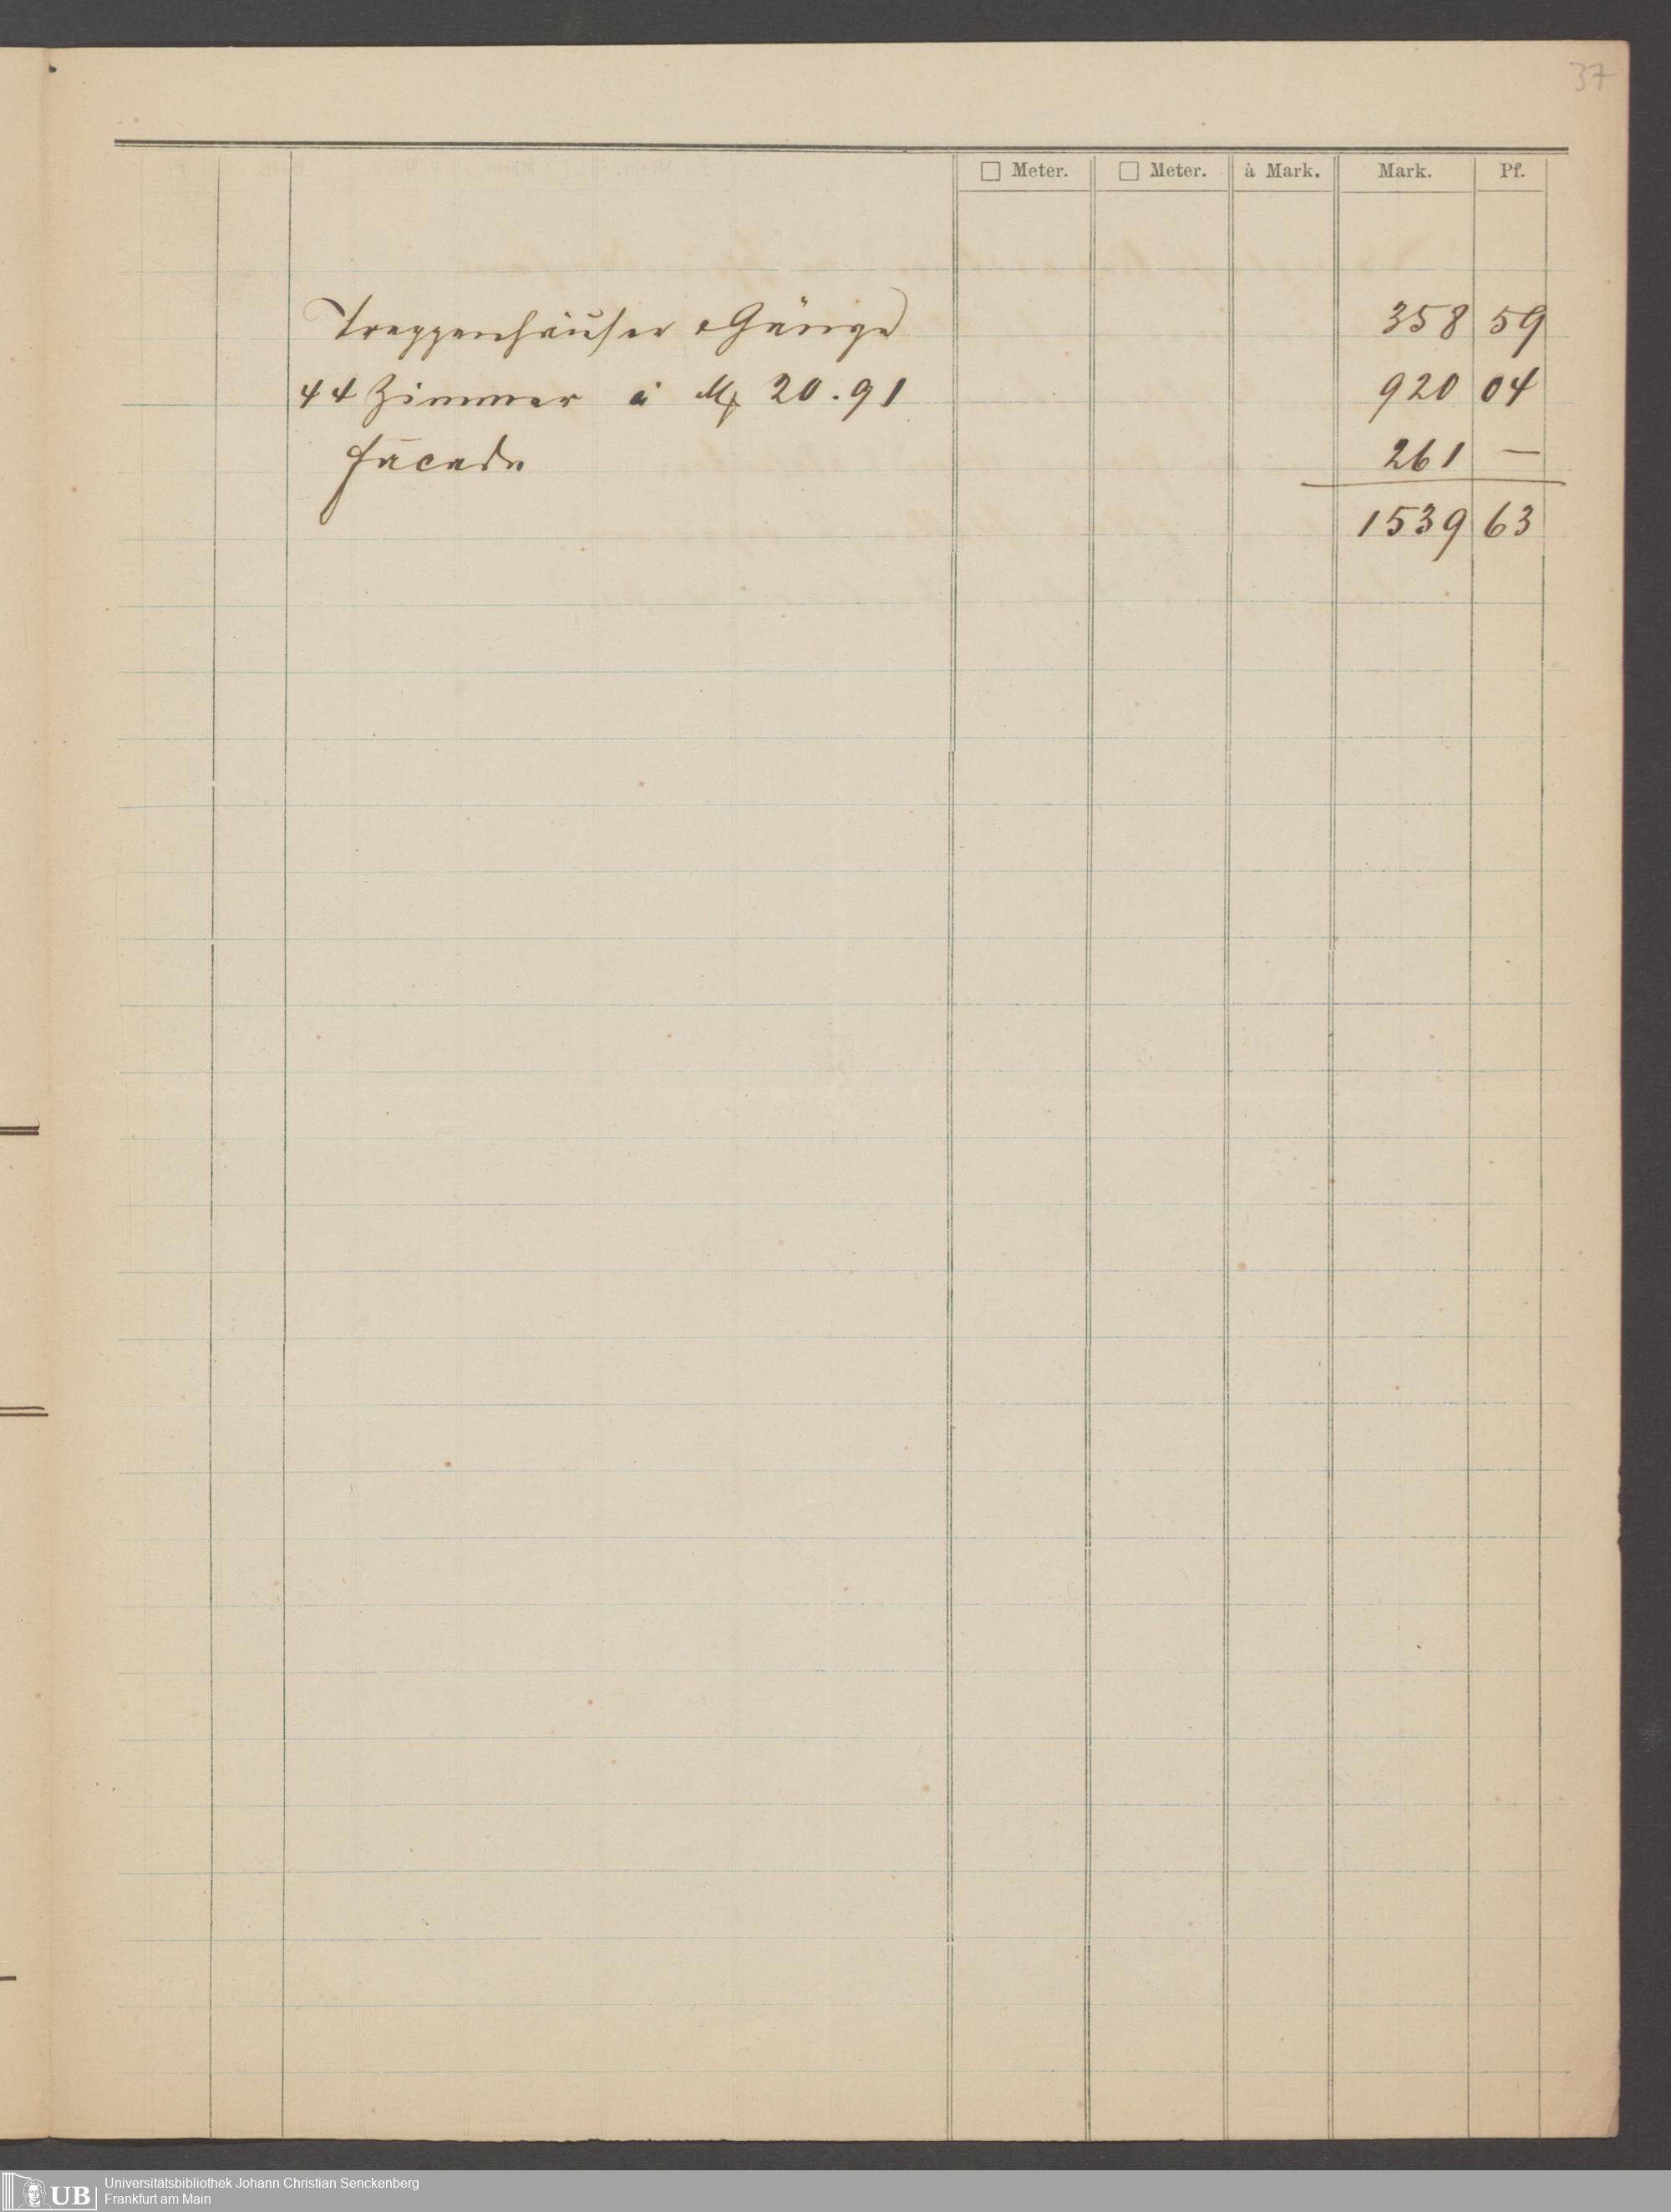 37
□ Meter. □ Meter. à Mark. Mark. Pf.
Treppenhäuser & Gänge 358 59
44 Zimmer à M 20.91 920 04
Facade 261 —
1539 63
UB Universitätsbibliothek Johann Christian Senckenberg
Frankfurt am Main